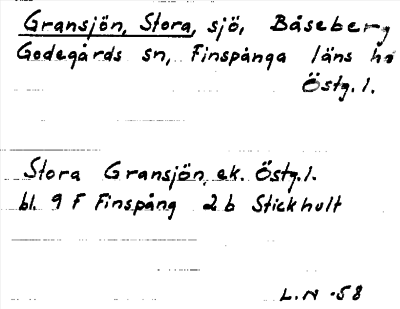 Gransjön, Stora, sjö, Båseberg
Godegårds sn, Finspånga läns hd
Östg. l.
Stora Gransjön, ek. Östg. l.
bl. 9 F Finspång 2 b Stickhult
L. N -58